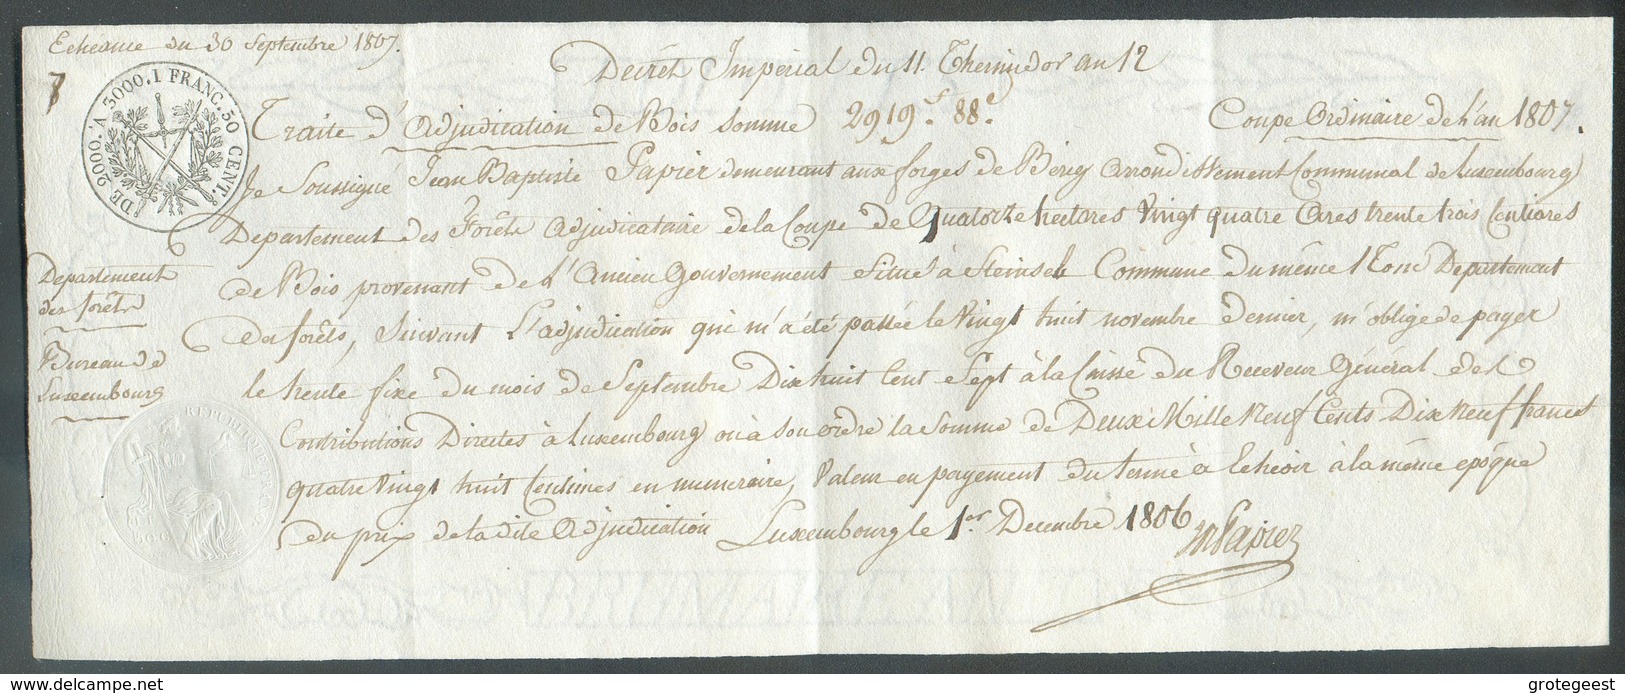 Echéance du 30 Septembre 1807.
7
Décret Impérial du 11. Thermidor an 12
DE 2000. A 3000. 1 FRANC. 50 CENT.s
Traite d'Adjudication de Bois somme 2919.f 88.c
Coupe Ordinaire de L'an 1807.
Je Soussigné Jean Baptiste Papier demeurant aux forges de Berg Arrondissement Communal de Luxembourg
Departement des Forêts Adjudicataire de la Coupe de Quatorze hectares Vingt quatre Ares trente trois Centiares
de Bois provenant de L'Ancien Gouvernement Situé à Steinsel Commune du même Nom Departement
des forêts, Suivant L'adjudication qui m'a été passée le Vingt huit novembre dernier, m'oblige de payer
le trente fixe du mois de Septembre Dix huit Cent Sept à la Caisse du Receveur Général des
Contributions Directes à Luxembourg ou à son ordre la Somme de Deux Mille Neuf Cents Dix Neuf francs
quatre Vingt huit Centimes en numéraire, Valeur en payement du terme à Echeoir à la même epoque
du prix de la dite Adjudication Luxembourg le 1.er Decembre 1806
JB Papier
Departement
des forêts
Bureau de
Luxembourg
REPUBLIQUE
www.delcampe.net
grotegeest